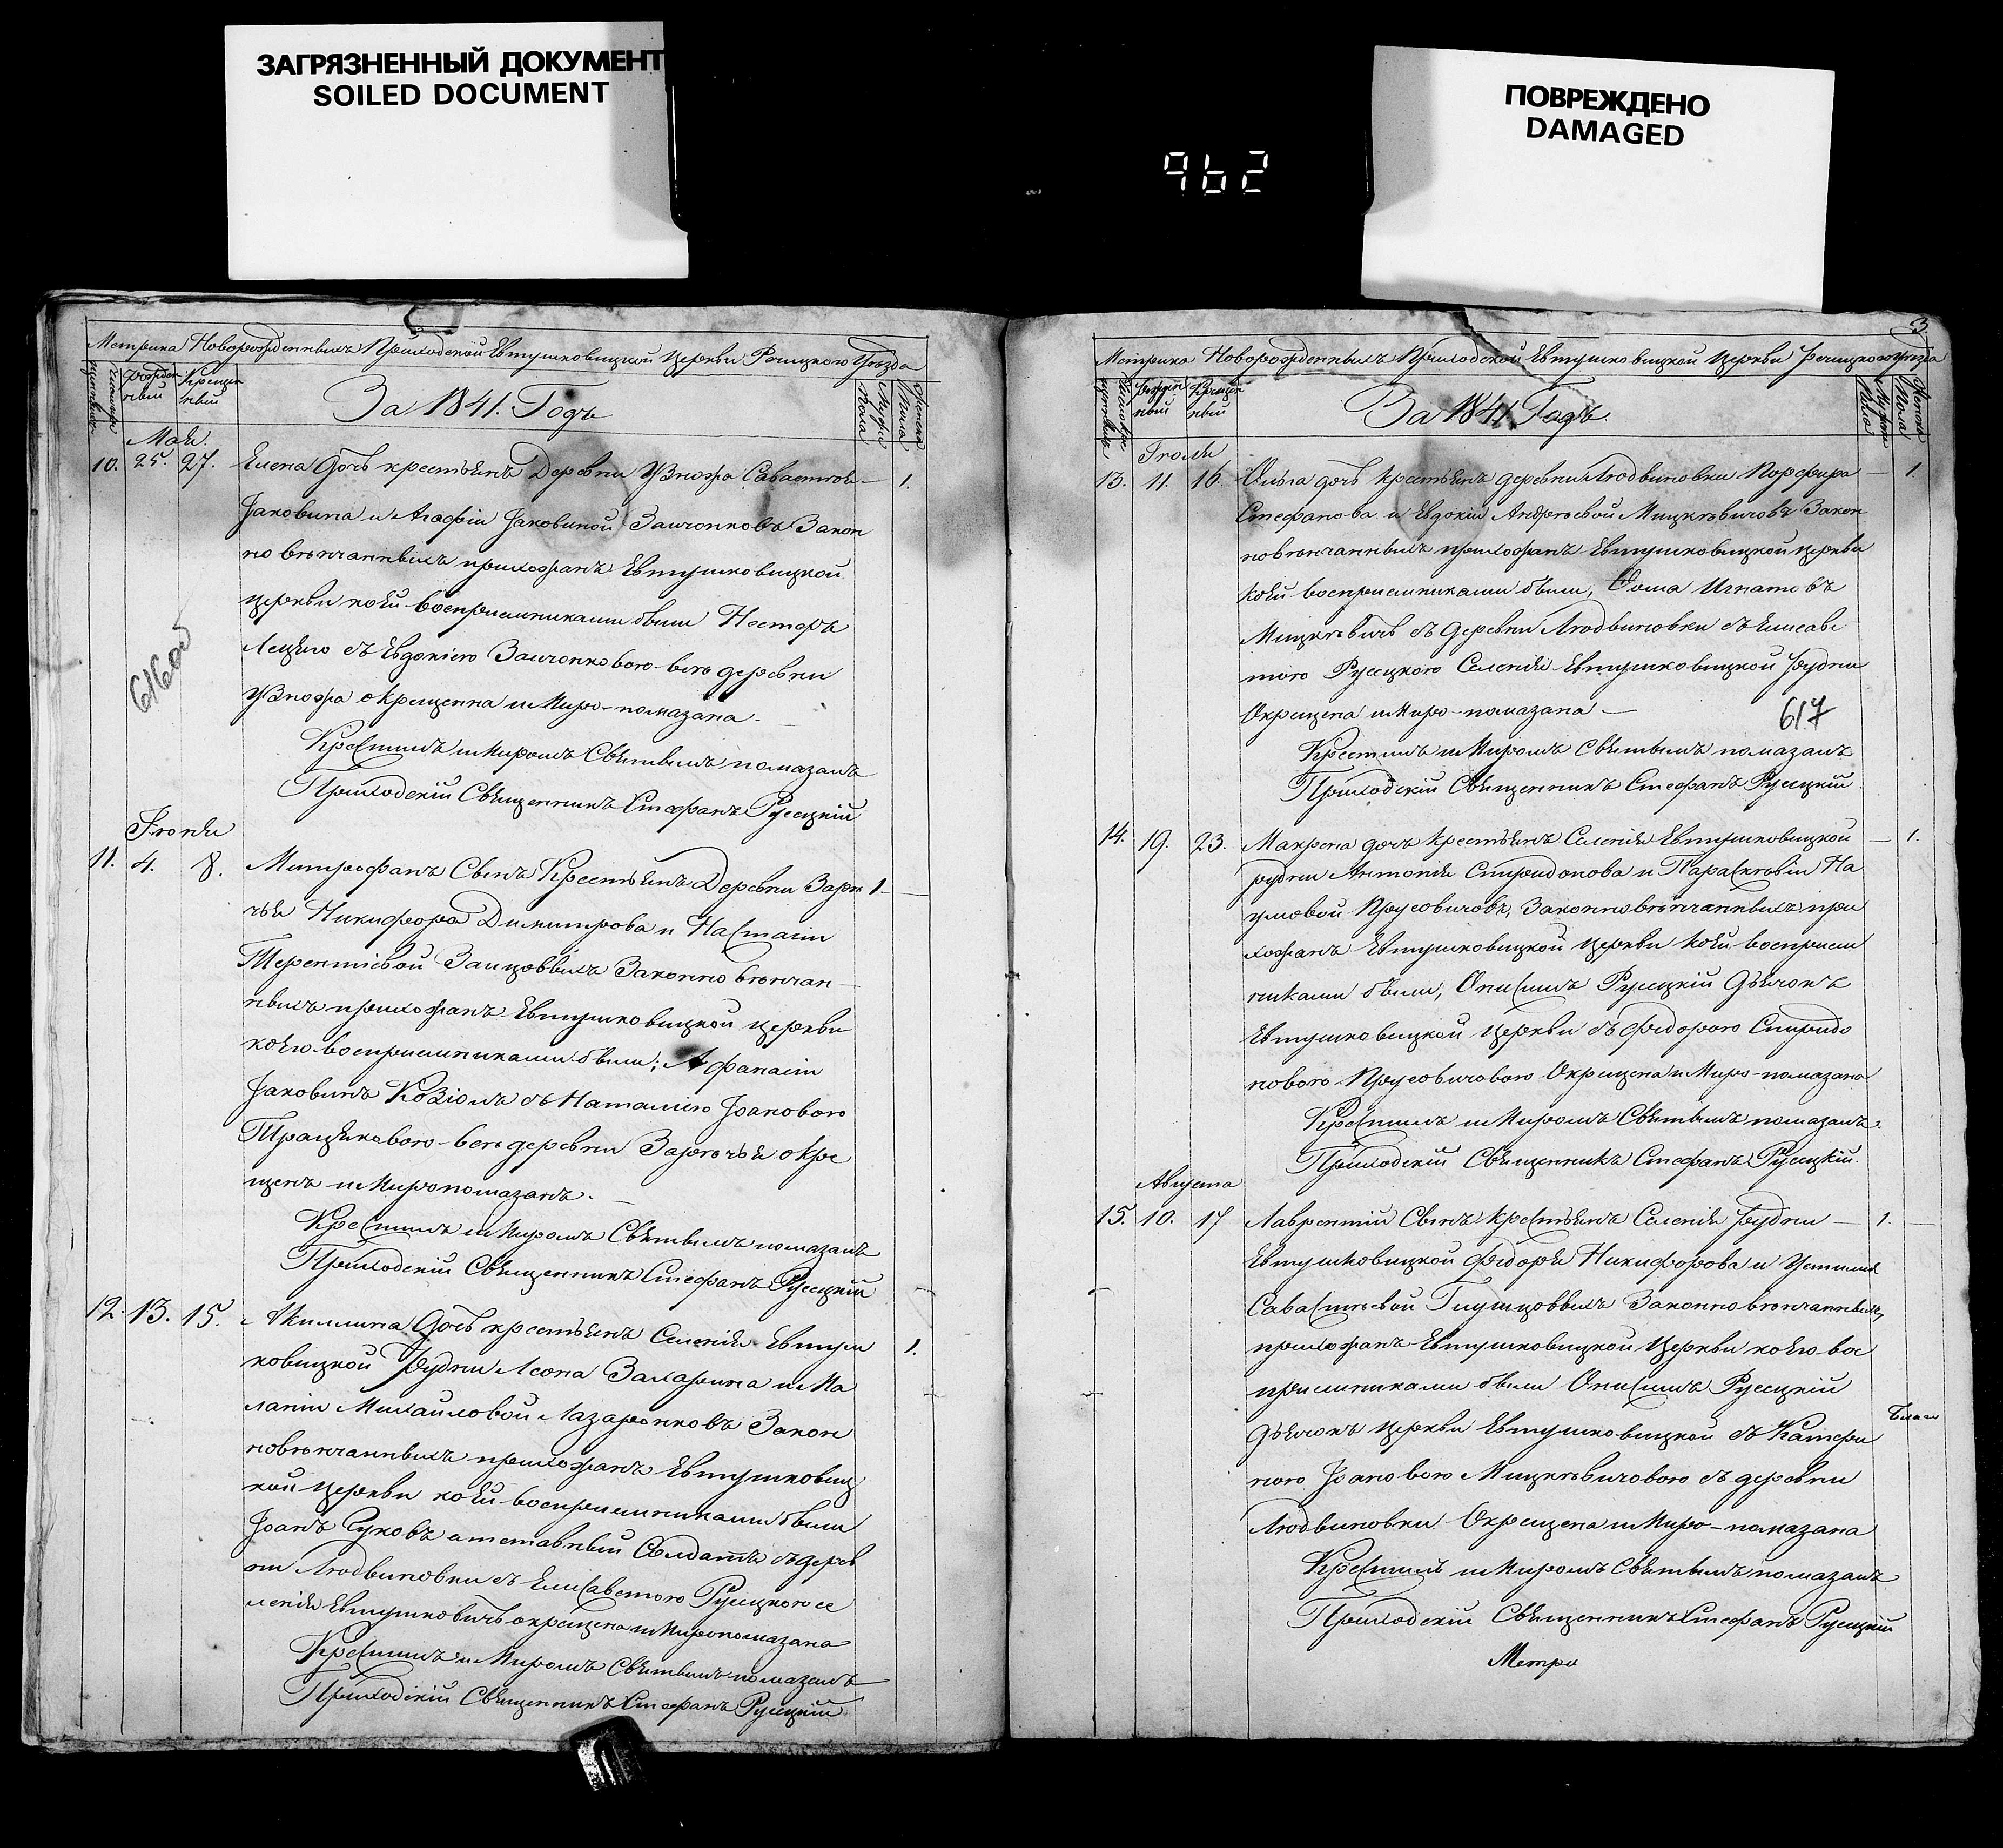 ЗАГРЯЗНЕННЫЙ ДОКУМЕНТ
SOILED DOCUMENT
ПОВРЕЖДЕНО
DAMAGED
962
Метрика Новорожденныхъ Приходской Евтушковицкой Церкви Речицкого Уѣзда
рожден
ный
Крещен
ный
За 1841. Годъ
Мужи
Пола
Женска
Пола
Маія.
10. 25. 27. Елена дочь крестьянъ Деревни Узножа Савастіея — 1.
Іаковина и Агафіи Іаковиной Заичонковъ Закон
но вѣнчанныхъ прихожанъ Евтушковицкой
церкви коея воспріемниками были Несторъ
съ Евдокіею Заичонковою всѣ деревни
Узножа окрещенна и Миро-помазана. —
Крестилъ и Миромъ Святымъ помазалъ
Приходскій Священникъ Стефанъ Русецкій
616об
Іюня
11. 4. 8. Митрофанъ Сынъ Крестьянъ Деревни Зарѣ 1 —
чья Никифора Димитрова и Настасіи
Терентіевой Заицоввыхъ Законно вѣнчан
ныхъ прихожанъ Евтушковицкой церкви
коего воспріемниками были; Афанасіи
Іаковинъ Козіолъ съ Наталіею Іоановою
всѣ деревни Зарѣчья окре
щенъ и Миропомазанъ. —
Крестилъ и Миромъ Святымъ помазалъ
Приходскій Священникъ Стефанъ Русецкій
12. 13. 15. Акилина дочь крестьянъ Селенія Евтуш 1.
ковицкой Рудни Леона Захарина и Ма
ланіи Михаиловой Лазаронковъ Закон
новѣнчанныхъ прихожанъ Евтушковиц
кой церкви коея воспріемниками были
Іоанъ Суковъ атставный Солдатъ съ дерев
ни Людвиновки съ Елисаветою Русецкою се
ленія Евтушковичъ окрещена и Миропомазана
Крестилъ и Миромъ Святымъ помазалъ
Приходскій Священникъ Стефанъ Русецкій
3
Метрика Новорожденныхъ Приходской Евтушковицкой Церкви Речицкого Уѣзда
рожден
ный
Крещен
ный
За 1841 Годъ.
Пола
Женска
Пола
Іюля
13. 11. 16. Ольга дочь крестьянъ деревни Людвиновки Порфира — 1.
Стефанова и Евдокіи Андрѣевой Мицкѣвичовъ Закон
новѣнчанныхъ прихожанъ Евтушковицкой церкви
коея воспріемниками были, Фома Игнатовъ
Мицкѣвичъ съ деревни Людвиновки съ Елисаве
тою Русецкою Селенія Евтушковицкой Рудни
Окрещена и Миро-помазана —
617
Крестилъ и Миромъ Святымъ помазалъ
Приходскій Священникъ Стефанъ Русецкій
14. 19. 23. Макрена дочь крестьянъ Селенія Евтушковицкой — 1.
рудни Антонія Спиридонова и Параскѣвіи На
умовой Прусовичовъ, Законно вѣнчанныхъ при
хожанъ Евтушковицкой церкви коея воспріем
никами были, Онисимъ Русецкій дьячокъ
Евтушковицкой церкви съ Федорою Спиридо
новою Прусовичовою Окрещена и Миро-помазана
Крестилъ и Миромъ Святымъ помазалъ.
Приходскій Священникъ Стефанъ Русецкій.
Августа
15. 10. 17 Лаврентіи Сынъ крестьянъ Селенія Рудни — 1.
Евтушковицкой Федора Никифорова и Устиніи
Савастѣевой Глушцоввыхъ Законно вѣнчанныхъ
прихожанъ Евтушковицкой Церкви коего вос
пріемниками были Онисимъ Русецкій
дьячокъ церкви Евтушковицкой съ Катери
ною Іоановою Мицкѣвичовою съ деревни
Людвиновки Окрещена и Миро-помазана
Крестилъ и Миромъ Святымъ помазалъ
Приходскій Священникъ Стефанъ Русецкій
Метри